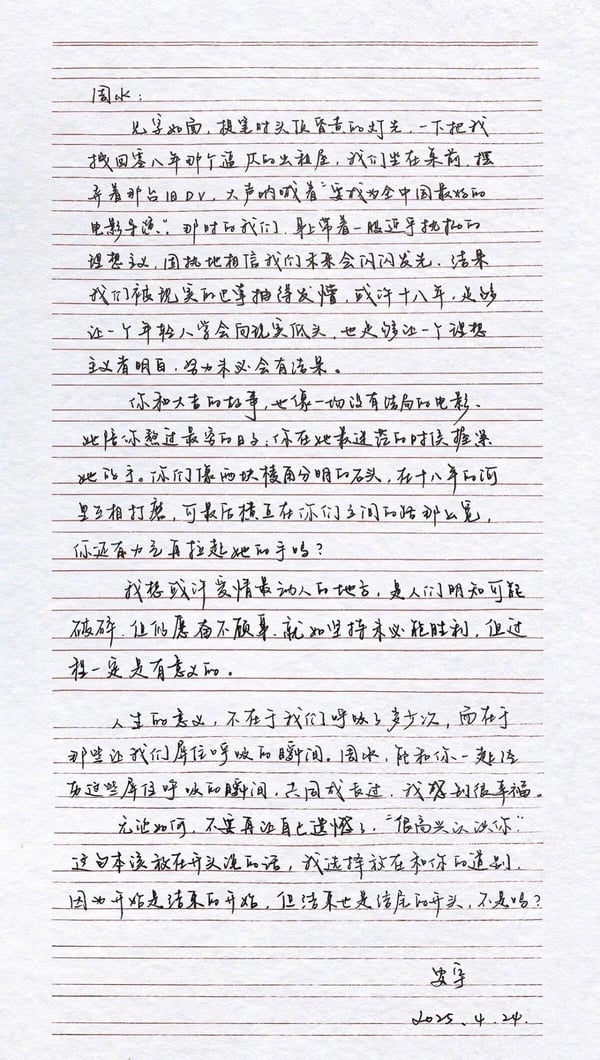 周水：
见字如面，提笔时头顶昏黄的灯光，一下把我
拽回零八年那个逼仄的出租屋，我们坐在桌前，摆
弄着那台旧DV，大声呐喊着“要成为全中国最好的
电影导演”。那时的我们，身上带着一股近乎执拗的
理想主义，固执地相信我们未来会闪闪发光，结果
我们被现实的巴掌抽得发懵，或许十八年，足够
让一个年轻人学会向现实低头，也足够让一个理想
主义者明白，努力未必会有结果。
你和大吉的故事，也像一场没有结局的电影，
她陪你熬过最穷的日子；你在她最迷茫的时候握紧
她的手。你们像两块棱角分明的石头，在十八年的河
里互相打磨，可最后横亘在你们之间的路那么宽，
你还有力气再拉起她的手吗？
我想或许爱情最动人的地方，是人们明知可能
破碎，但仍愿奋不顾身，就如坚持未必能胜利，但过
程一定是有意义的。
人生的意义，不在于我们呼吸了多少次，而在于
那些让我们屏住呼吸的瞬间。周水，能和你一起经
历这些屏住呼吸的瞬间，共同成长过，我感到很幸福。
无论如何，不要再让自己遗憾了，“很高兴认识你”
这句本该放在开头说的话，我选择放在和你的道别，
因为开始是结束的开始，但结束也是结尾的开头，不是吗？
安宇
2025.4.24.